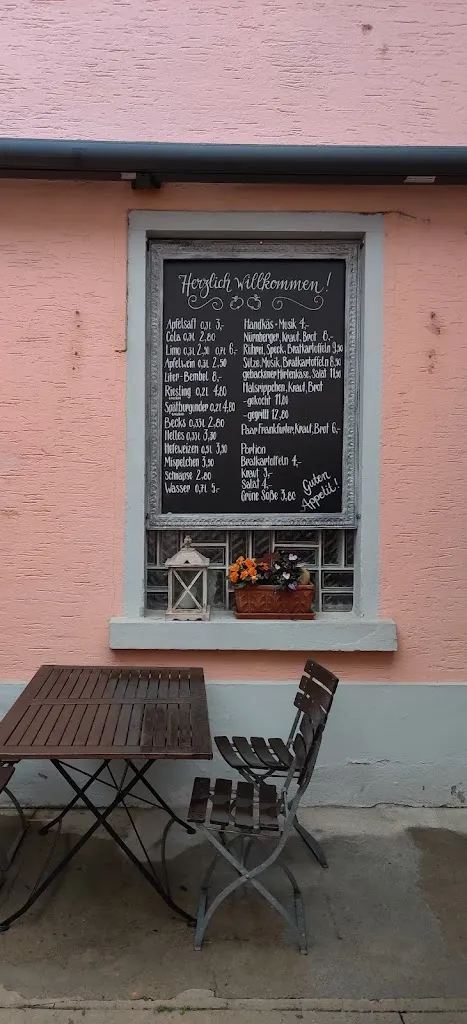 Herzlich Willkommen!
Apfelsaft 0,3L 3,-
Cola 0,3L 2,80
Limo 0,3L 2,50 0,7L 6,-
Apfelwein 0,3L 2,50
Liter-Bembel 8,-
Riesling 0,2L 4,80
Spätburgunder 0,2L 4,80
Becks 0,33L 2,80
Helles 0,33L 3,30
Hefeweizen 0,5L 3,90
Mispelchen 3,50
Schnäpse 2,80
Wasser 0,7L 5,-
Handkäs-Musik 4,-
Nürnberger, Kraut, Brot 8,-
Rührei, Speck, Bratkartoffeln 9,50
Sülze, Musik, Bratkartoffeln 8,50
gebackener Hirtenkäse, Salat 11,50
Halsrippchen, Kraut, Brot
-gekocht 11,80
-gegrillt 12,80
Paar Frankfurter, Kraut, Brot 6,-
Portion
Bratkartoffeln 4,-
Kraut 3,-
Salat 4,-
Grüne Soße 3,80
Guten
Appetit!